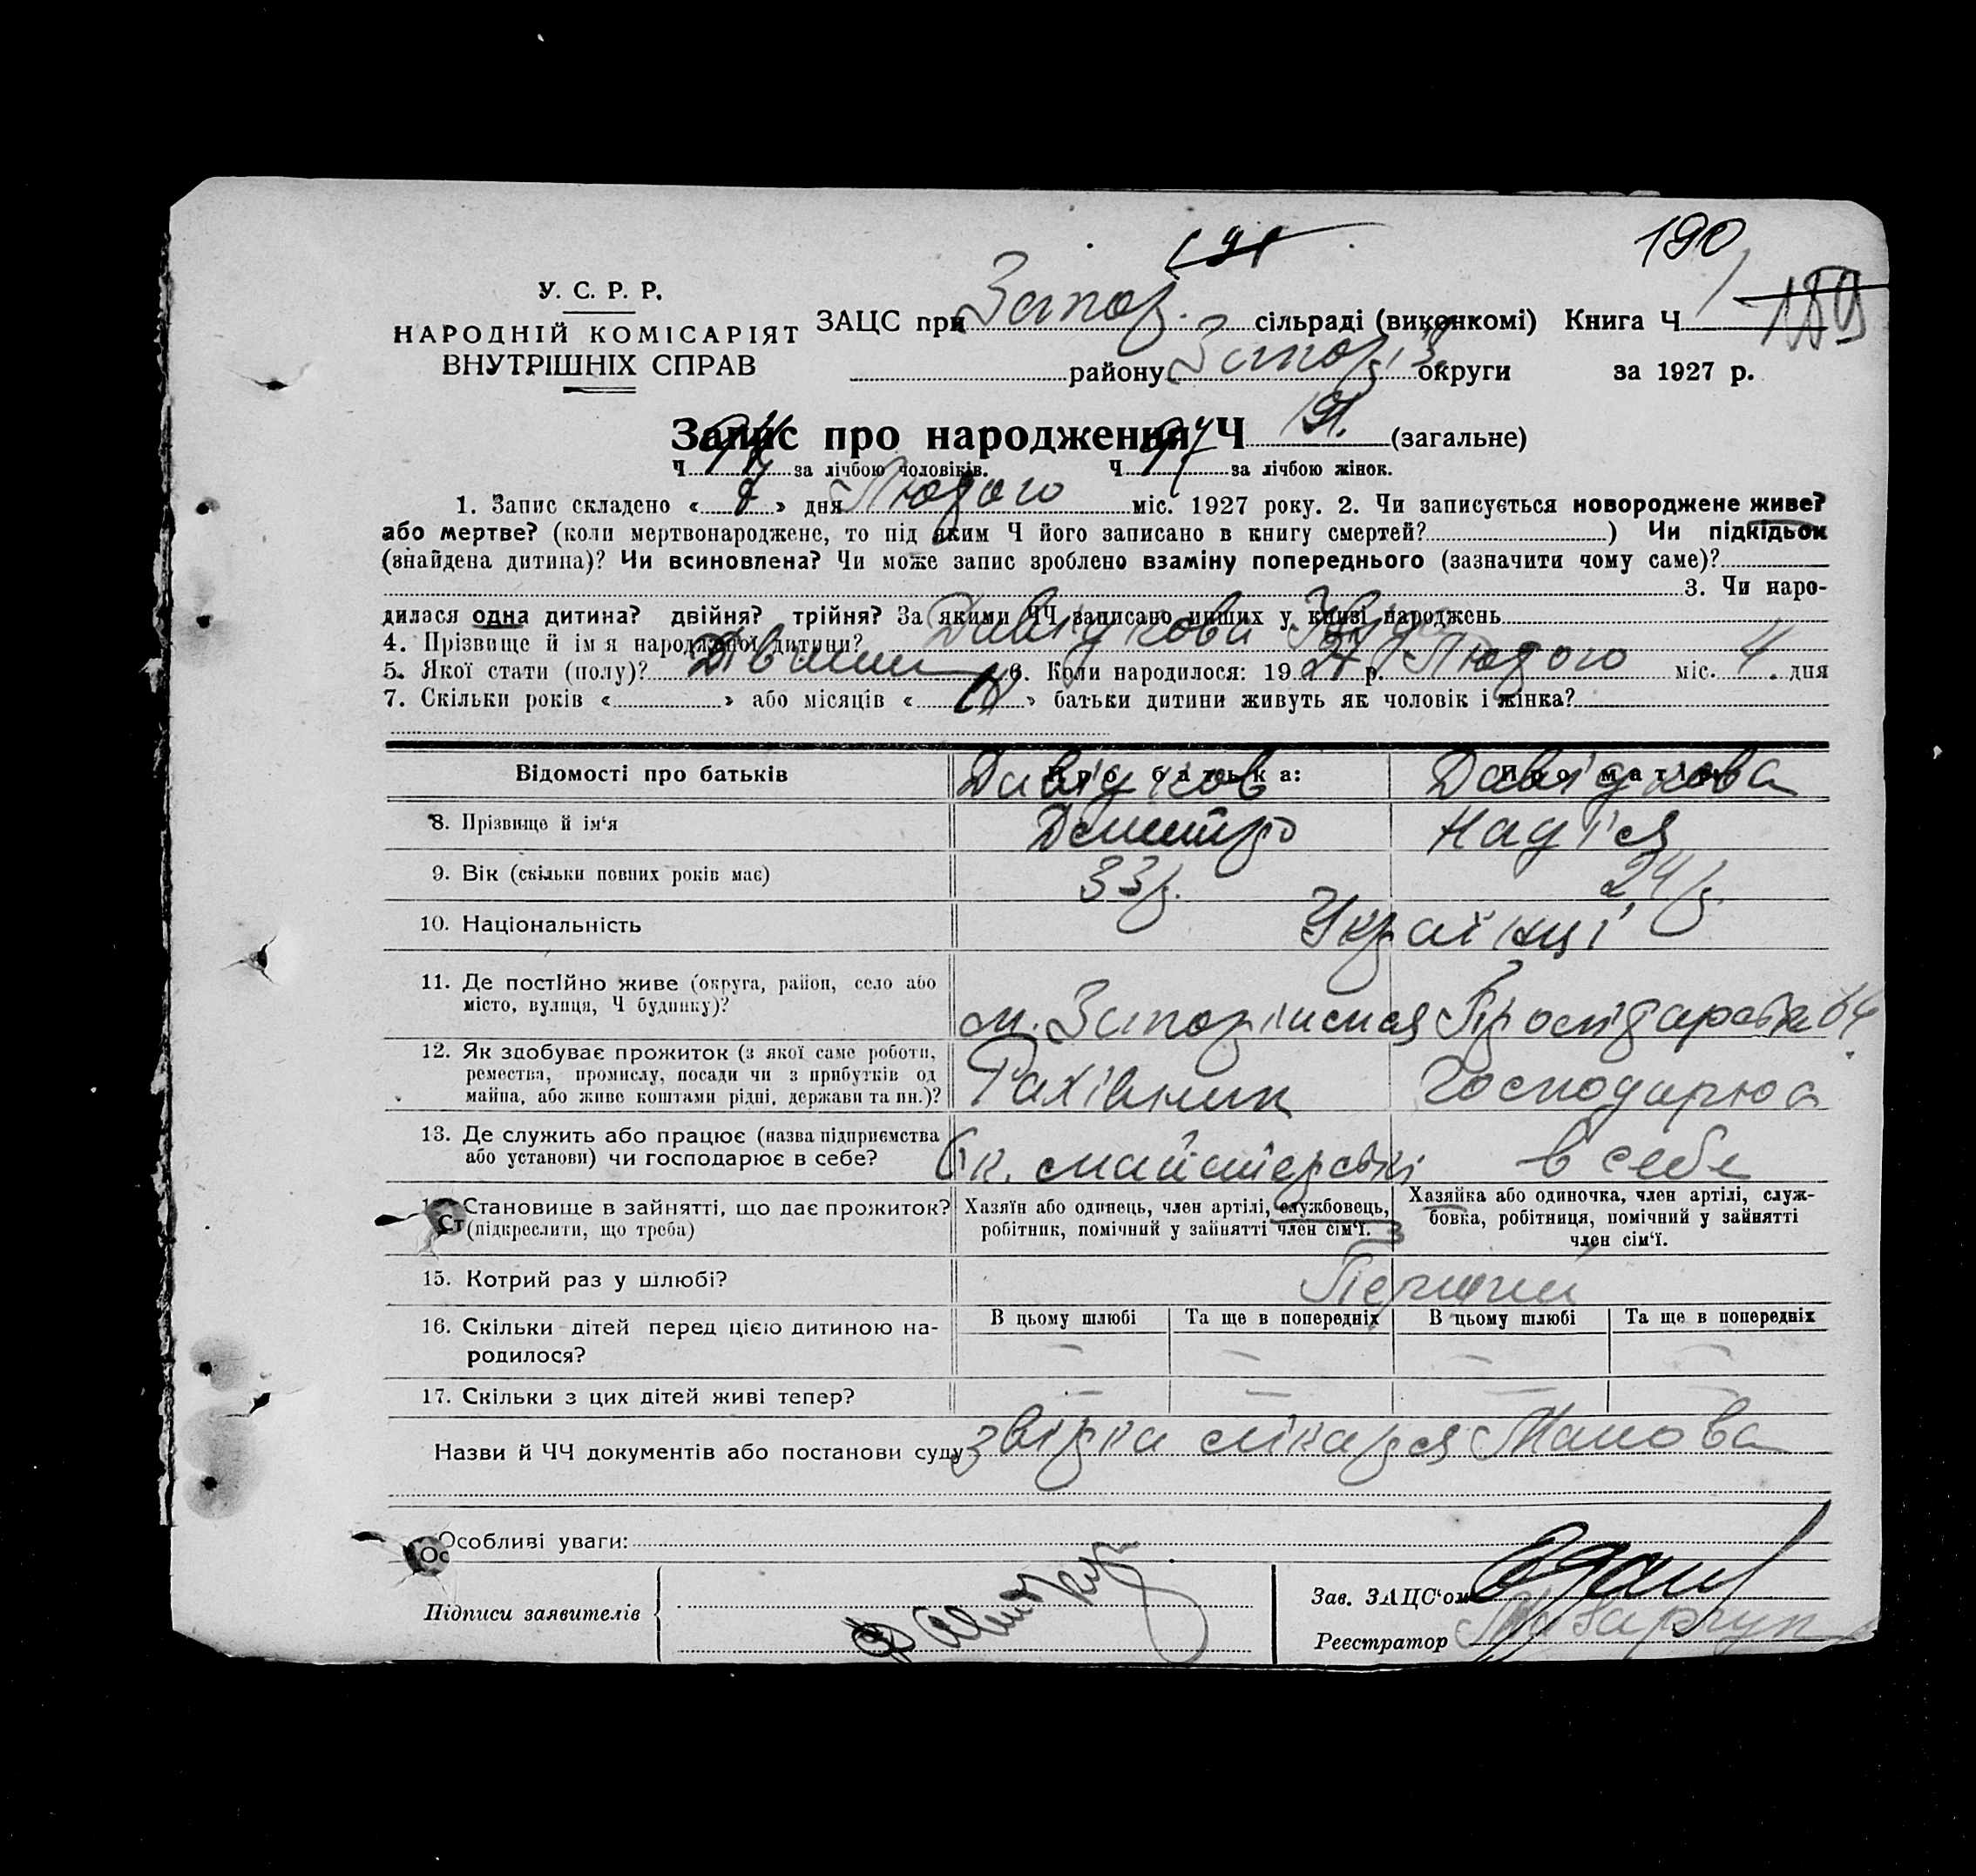 190
У. С. Р. Р.
НАРОДНІЙ КОМІСАРІЯТ
ВНУТРІШНІХ СПРАВ
ЗАЦС при Запор. сільраді (виконкомі) Книга Ч 189
району Запоріз округи за 1927 р.
Запис про народження Ч (загальне)
Ч за лічбою чоловіків. Ч 97 за лічбою жінок.
1. Запис складено « » дня Лютого міс. 1927 року. 2. Чи записується новороджене живе?
або мертве? (коли мертвонароджене, то під яким Ч його записано в книгу смертей? ) Чи підкідьок
(знайдена дитина)? Чи всиновлена? Чи може запис зроблено взаміну попереднього (зазначити чому саме)?
3. Чи наро-
дилася одна дитина? двійня? трійня? За якими ЧЧ записано инших у книзі народжень
4. Прізвище й ім я народженої дитини? Давідкова
5. Якої стати (полу)? Дівчина 6. Коли народилося: 1927 р. Лютого міс. 4 дня
7. Скільки років « » або місяців « » батьки дитини живуть як чоловік і жінка?
Відомості про батьків Про батька: Про матір:
Давідков Давідкова
8. Прізвище й ім'я Дмитро Надія
9. Вік (скільки повних років має) 33р. 24р.
10. Національність Українці
11. Де постійно живе (округа, район, село або
місто, вулиця, Ч будинку)? м. Запоріжжя 64
12. Як здобуває прожиток (з якої саме роботи,
ремества, промислу, посади чи з прибутків од
майна, або живе коштами рідні, держави та ин.)? Рахівник Господарює
13. Де служить або працює (назва підприємства
або установи) чи господарює в себе? майстерські в себе
Становище в зайнятті, що дає прожиток?
(підкреслити, що треба)
Хазяїн або одинець, член артілі, службовець,
робітник, помічний у зайнятті член сім'ї.
Хазяйка або одиночка, член артілі, служ-
бовка, робітниця, помічний у зайнятті
член сім'ї.
15. Котрий раз у шлюбі? Перший
16. Скільки дітей перед цією дитиною на-
родилося?
В цьому шлюбі Та ще в попередніх В цьому шлюбі Та ще в попередніх
17. Скільки з цих дітей живі тепер?
Назви й ЧЧ документів або постанови суду звірка лікаря
Особливі уваги:
Підписи заявителів
Зав. ЗАЦС'ом
Реєстратор